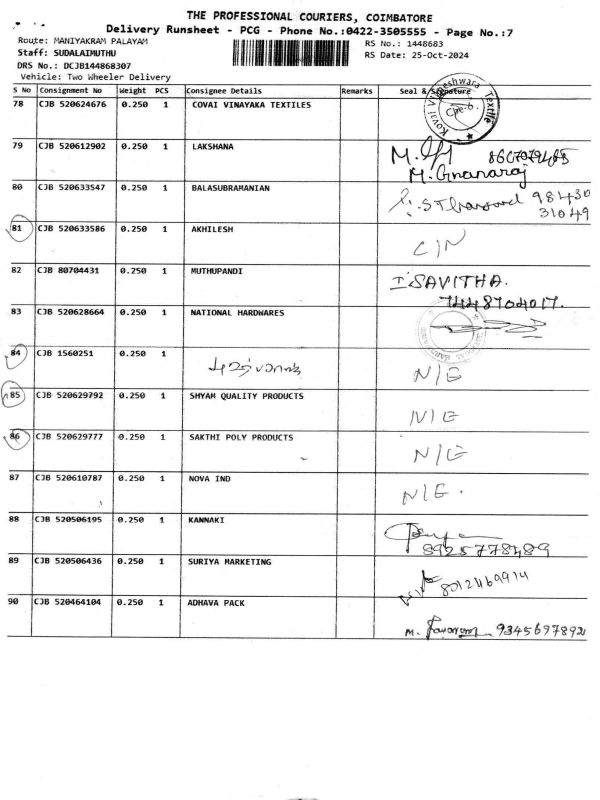 THE PROFESSIONAL COURIERS, COIMBATORE
Delivery Runsheet - PCG - Phone No.:0422-3505555 - Page No.:7
Route: MANIYAKRAM PALAYAM
RS No.: 1448683
Staff: SUDALAIMUTHU
RS Date: 25-Oct-2024
DRS No.: DCJB144868307
Vehicle: Two Wheeler Delivery
S No Consignment No Weight PCS Consignee Details Remarks Seal & Signature
78 CJB 520624676 0.250 1 COVAI VINAYAKA TEXTILES
79 CJB 520612902 0.250 1 LAKSHANA
M. Gnanaraj
80 CJB 520633547 0.250 1 BALASUBRAMANIAN 98430
31049
81 CJB 520633586 0.250 1 AKHILESH
C/N
82 CJB 80704431 0.250 1 MUTHUPANDI SAVITHA.
7448704017.
83 CJB 520628664 0.250 1 NATIONAL HARDWARES
84 CJB 1560251 0.250 1
N/E
85 CJB 520629792 0.250 1 SHYAM QUALITY PRODUCTS
N/E
86 CJB 520629777 0.250 1 SAKTHI POLY PRODUCTS
N/E
87 CJB 520610787 0.250 1 NOVA IND
N/E.
88 CJB 520506195 0.250 1 KANNAKI
8925778489
89 CJB 520506436 0.250 1 SURIYA MARKETING
8012469914
90 CJB 520464104 0.250 1 ADHAVA PACK
M. 9345697892